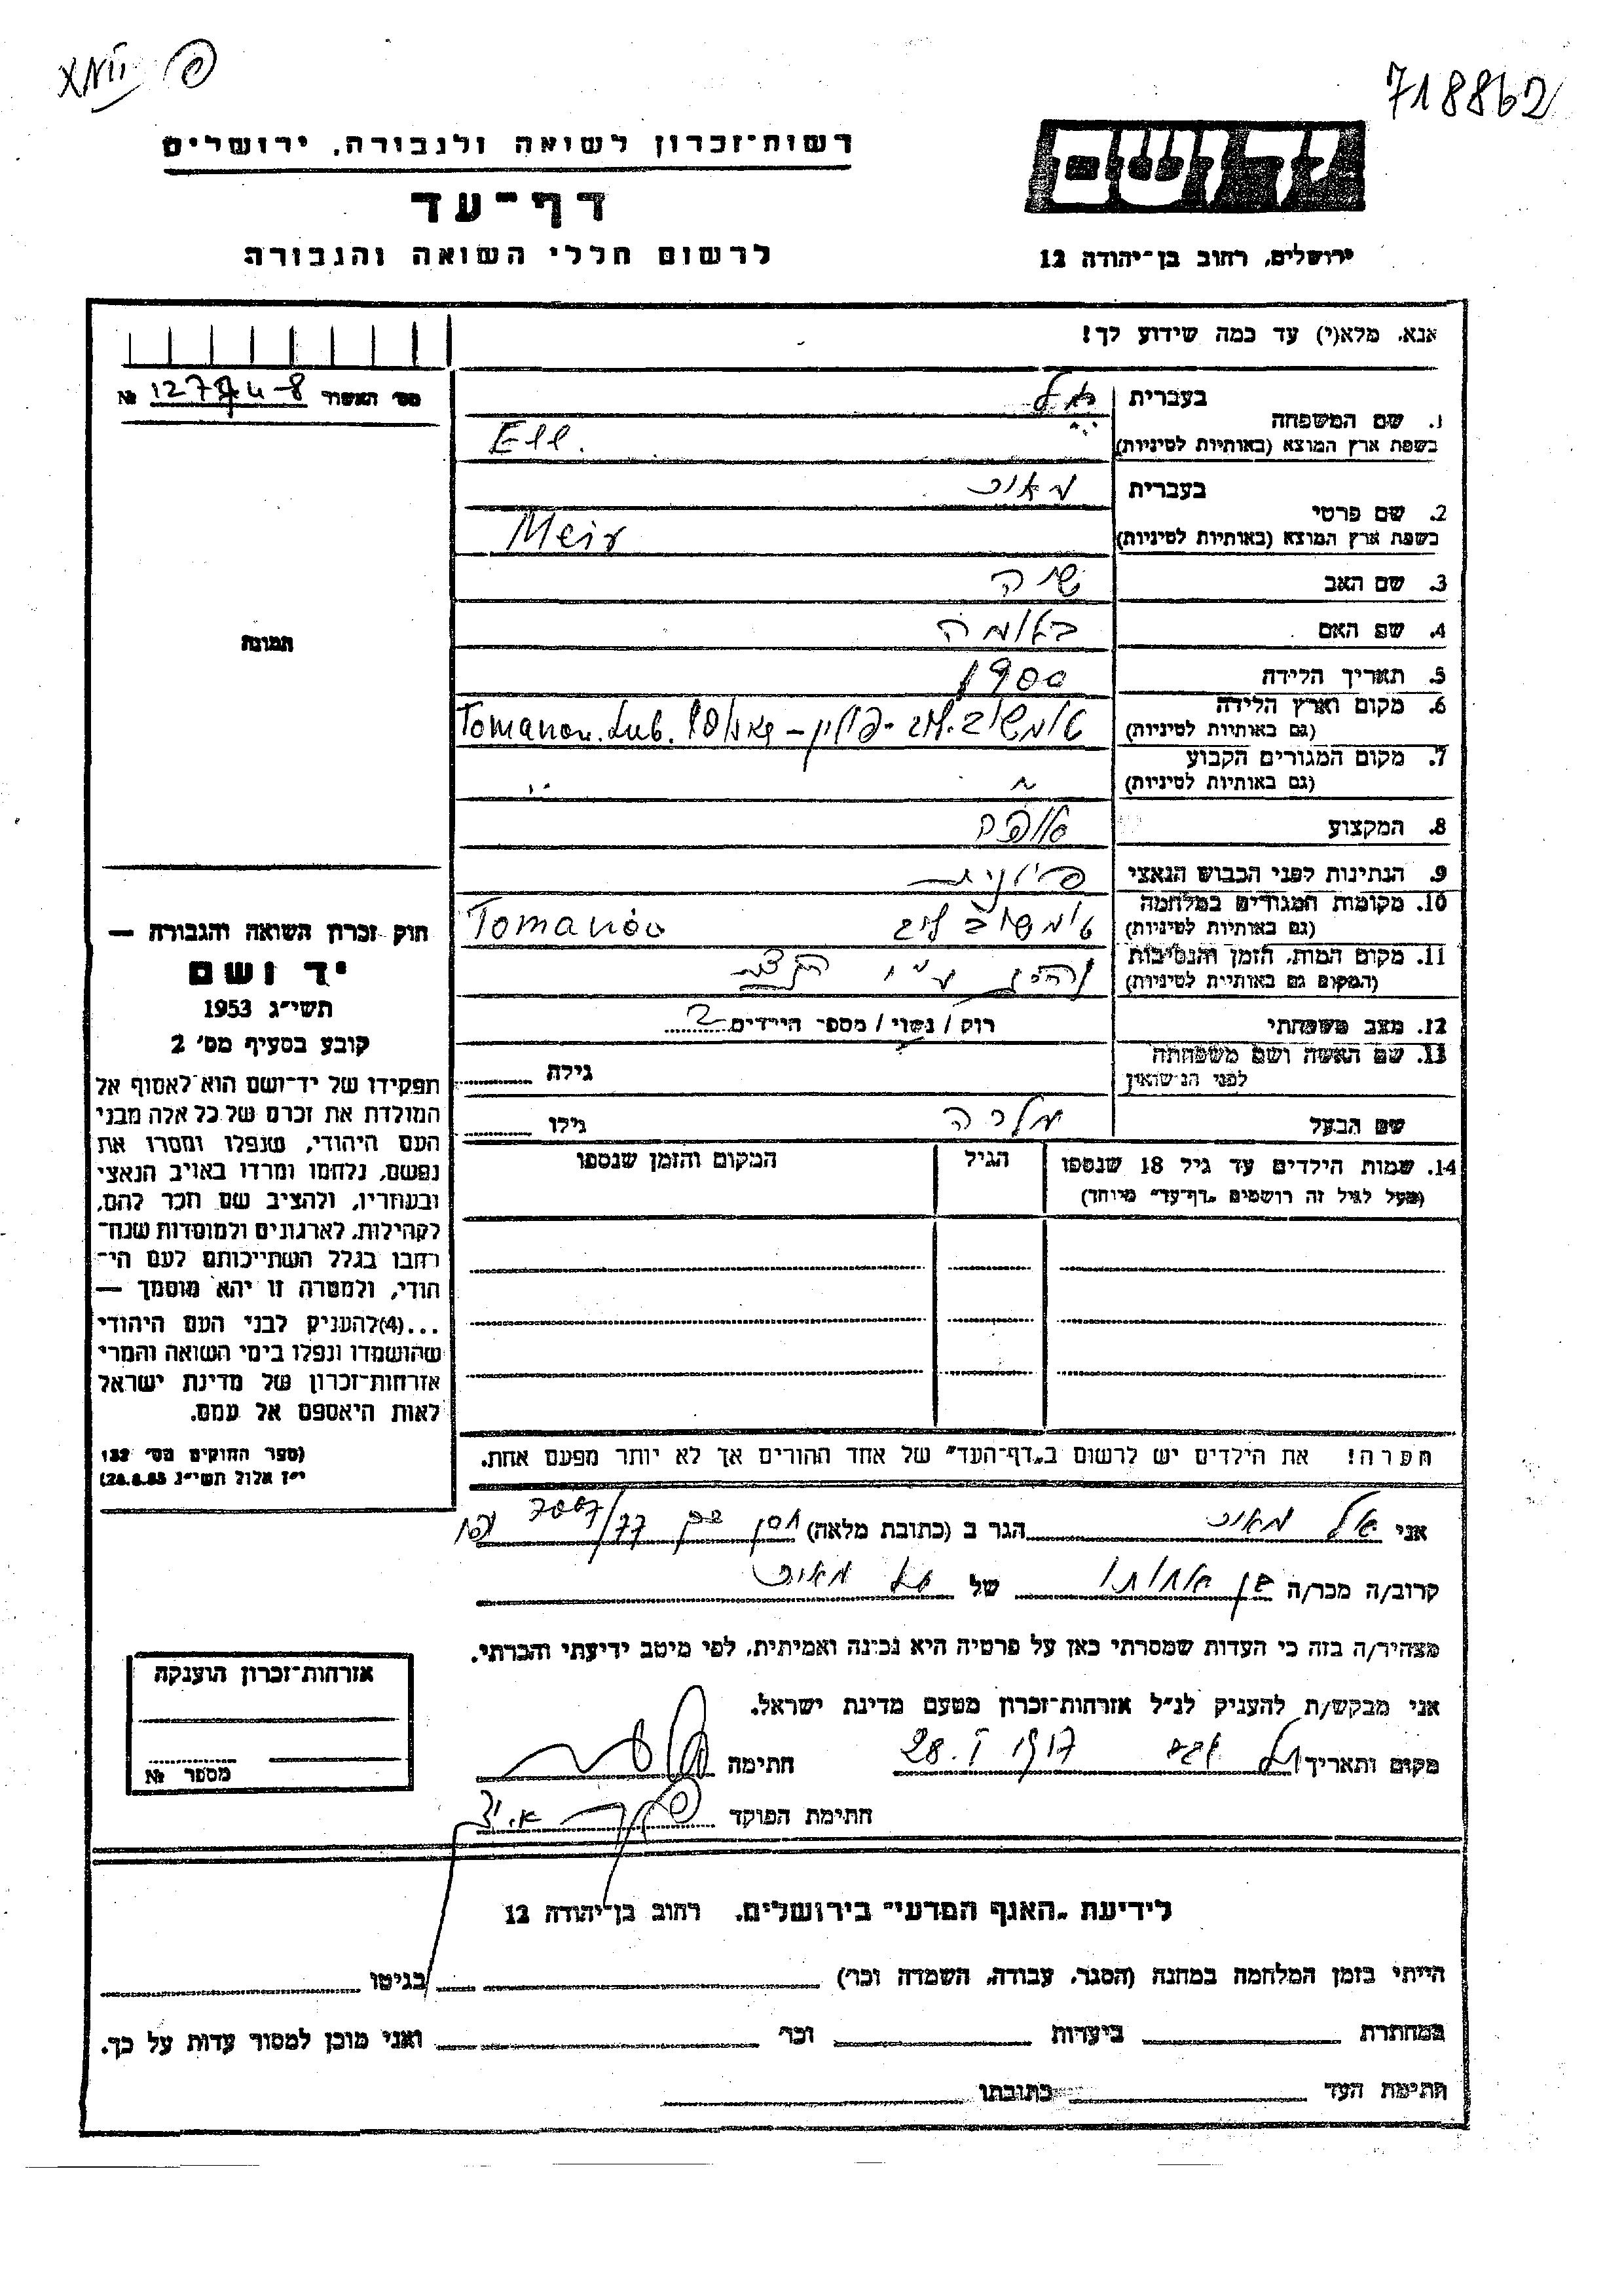 718862
רשות־זכרון לשואה ולגבורה, ירושלים
דף־עד
לרשום חללי השואה והגבורה
יד ושם
ירושלים, רחוב בן־יהודה 12
אנא, מלא(י) עד כמה שידוע לך!
מס׳ האשור № 12774-8
1. שם המשפחה
בעברית
בשפת ארץ המוצא (באותיות לטיניות) Ell.
2. שם פרטי
בעברית מאיר
בשפת ארץ המוצא (באותיות לטיניות) Meir
3. שם האב
4. שם האם בלומה
5. תאריך הלידה 1900
6. מקום וארץ הלידה
(גם באותיות לטיניות) Tomanon. Lub.
7. מקום המגורים הקבוע
(גם באותיות לטיניות)
8. המקצוע
9. הנתינות לפני הכבוש הנאצי
10. מקומות המגורים במלחמה
(גם באותיות לטיניות) Tomanów
11. מקום המות, הזמן והנסיבות
(המקום גם באותיות לטיניות)
12. מצב משפחתי רוק / נשוי / מספר הילדים 2
13. שם האשה ושם משפחתה
לפני הנישואין גילה
שם הבעל מלכה גילו
14. שמות הילדים עד גיל 18 שנספו
(מעל לגיל זה רושמים „דף־עד״ מיוחד)
הגיל
המקום והזמן שנספו
הערה! את הילדים יש לרשום ב„דף־העד״ של אחד ההורים אך לא יותר מפעם אחת.
תמונה
חוק זכרון השואה והגבורה —
יד ושם
תשי״ג 1953
קובע בסעיף מס׳ 2
תפקידו של יד־ושם הוא לאסוף אל
המולדת את זכרם של כל אלה מבני
העם היהודי, שנפלו ומסרו את
נפשם, נלחמו ומרדו באויב הנאצי
ובעוזריו, ולהציב שם וזכר להם,
לקהילות, לארגונים ולמוסדות שנח־
רבו בגלל השתייכותם לעם הי־
הודי, ולמטרה זו יהא מוסמך —
...(4)להעניק לבני העם היהודי
שהושמדו ונפלו בימי השואה והמרי
אזרחות־זכרון של מדינת ישראל
לאות היאספם אל עמם.
(ספר החוקים מס׳ 132
י״ז אלול תשי״ג 28.8.53)
אני אל מאיר הגר ב (כתובת מלאה)
קרוב/ה מכר/ה בן אחותו של אל מאיר
מצהיר/ה בזה כי העדות שמסרתי כאן על פרטיה היא נכונה ואמיתית, לפי מיטב ידיעתי והכרתי.
אני מבקש/ת להעניק לנ״ל אזרחות־זכרון מטעם מדינת ישראל.
מקום ותאריך חתימה
חתימת הפוקד
אזרחות־זכרון הוענקה
מספר №
לידיעת „האגף המדעי״ בירושלים, רחוב בן־יהודה 12
הייתי בזמן המלחמה במחנה (הסגר, עבודה, השמדה וכו׳) בגיטו
במחתרת ביערות וכו׳ ואני מוכן למסור עדות על כך.
חתימת העד כתובתו